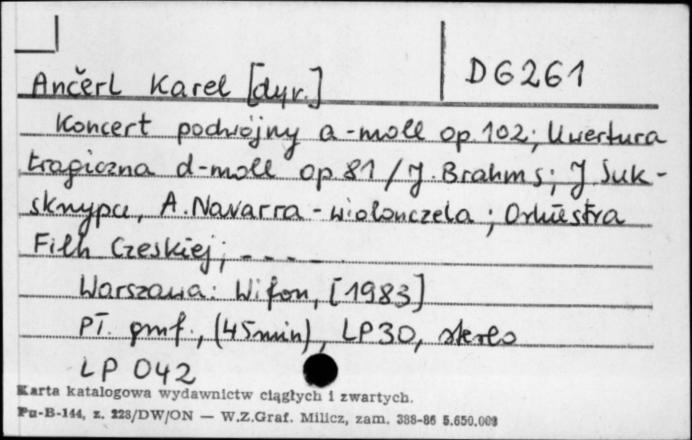 D6261
Ančerl Karel [dyr.]
Koncert podwójny a-moll op. 102; Uwertura
tragiczna d-moll op 81 / J. Brahms; J. Suk-
skrzypce, A. Navarra - wiolonczela; Orkiestra
Filh Czeskiej; - - - -
Warszawa: Wifon, [1983]
Pł. gmf., (45 min), LP30, stereo
LP 042
Karta katalogowa wydawnictw ciągłych i zwartych.
Pu-B-144, z. 228/DW/ON — W.Z.Graf. Milicz, zam. 388-86 5.650.000